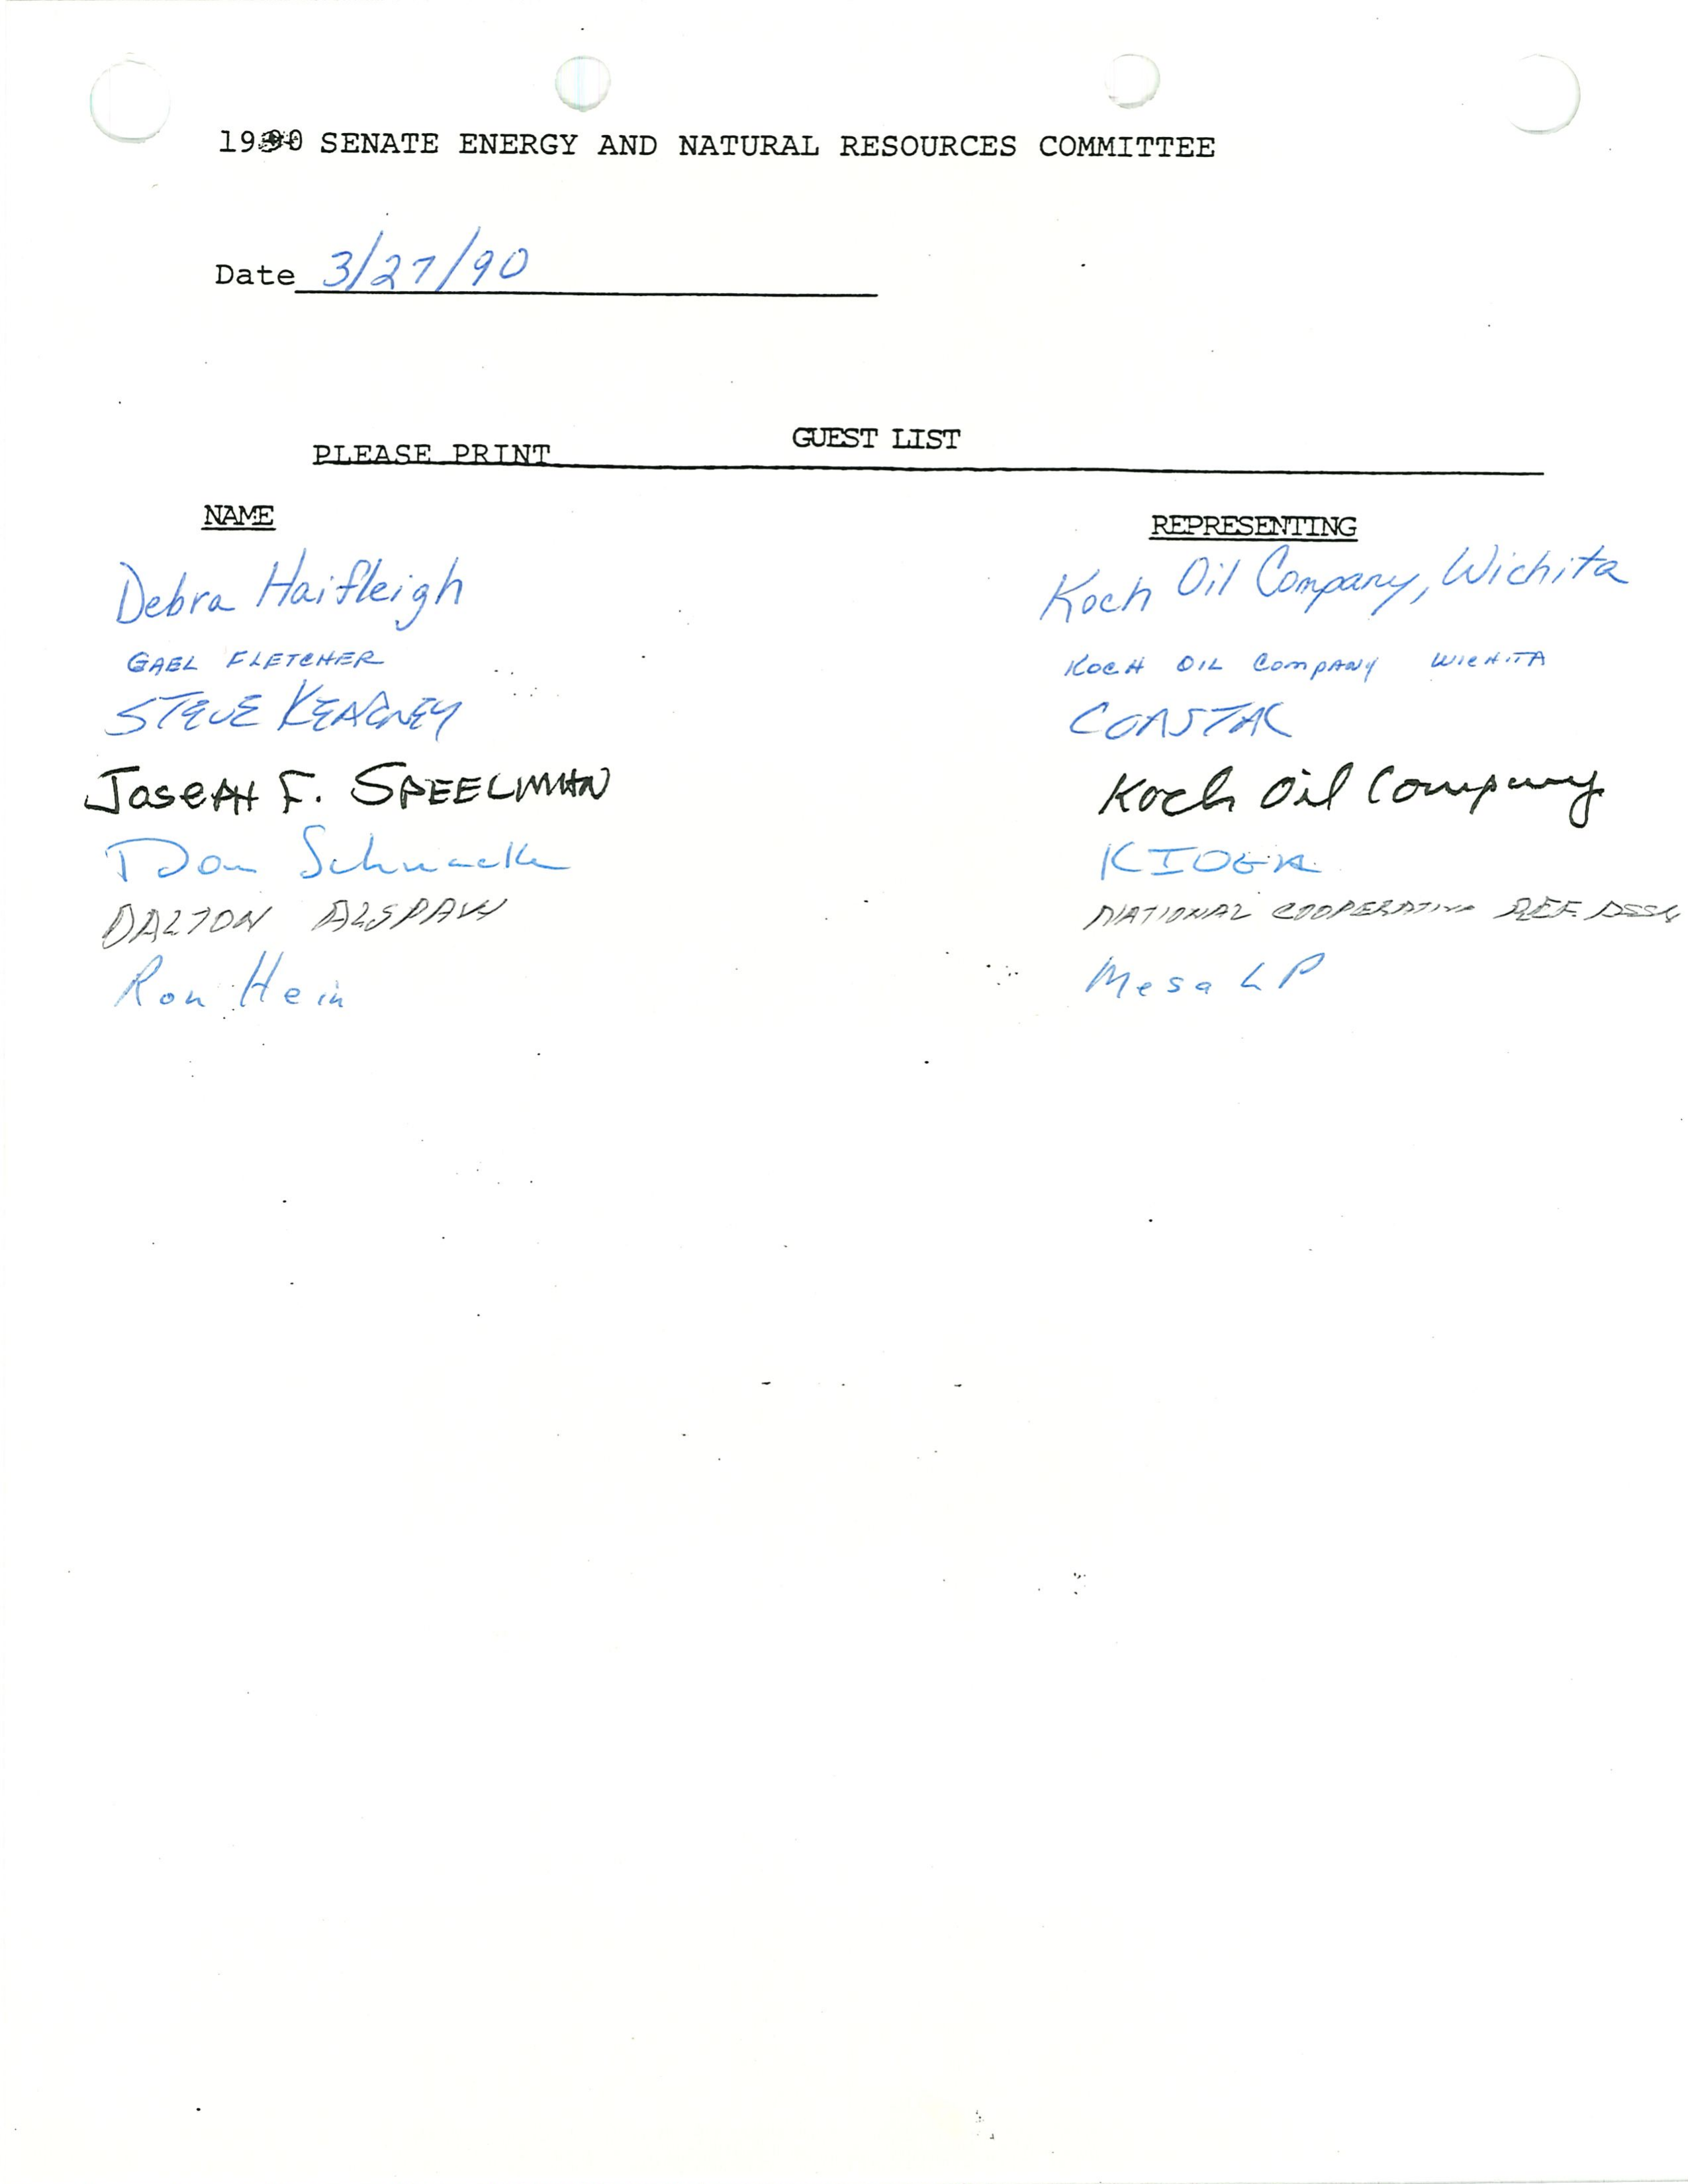 1990 SENATE ENERGY AND NATURAL RESOURCES COMMITTEE
Date 3/27/90
GUEST LIST
PLEASE PRINT
NAME REPRESENTING
Debra Haifleigh Koch Oil Company, Wichita
GAEL FLETCHER KOCH OIL COMPANY WICHITA
STEVE KEARNEY COASTAL
JOSEPH F. SPEELMAN Koch Oil Company
Don Schnacke KIOGA
DALTON ALSPAW NATIONAL COOPERATIVE REF. ASSN
Ron Hein Mesa LP